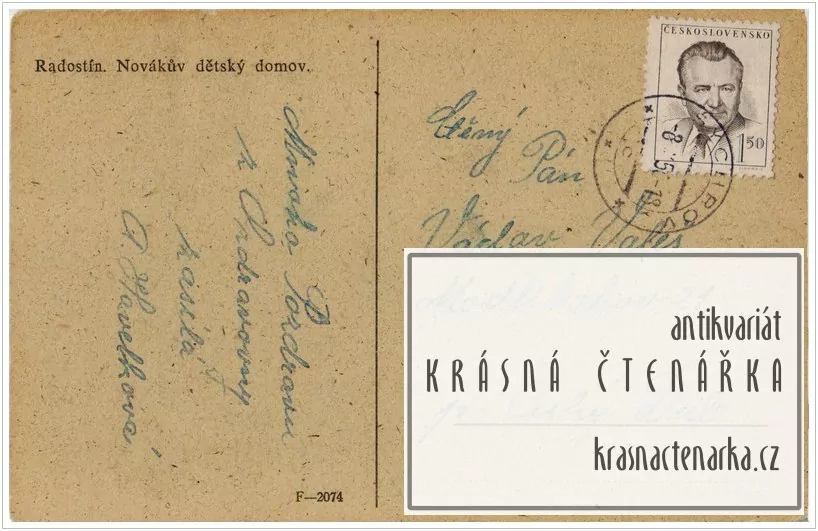 Radostín. Novákův dětský domov.
Mnoho Pozdravů
z Ozdravovny
zasílá
Havelková
F—2074
ČESKOSLOVENSKO
1 50
Ctěný
Pán
Václav
antikvariát
KRÁSNÁ ČTENÁŘKA
krasnactenarka.cz